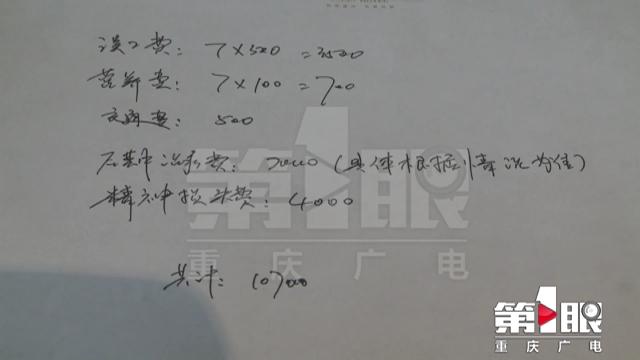 误工费: 7×500=3500
营养费: 7×100=700
交通费: 500
后期治疗费: 2000(具体根据情况为准)
精神损失费: 4000
共计: 10700
第1眼
重庆广电
第1眼
重庆广电